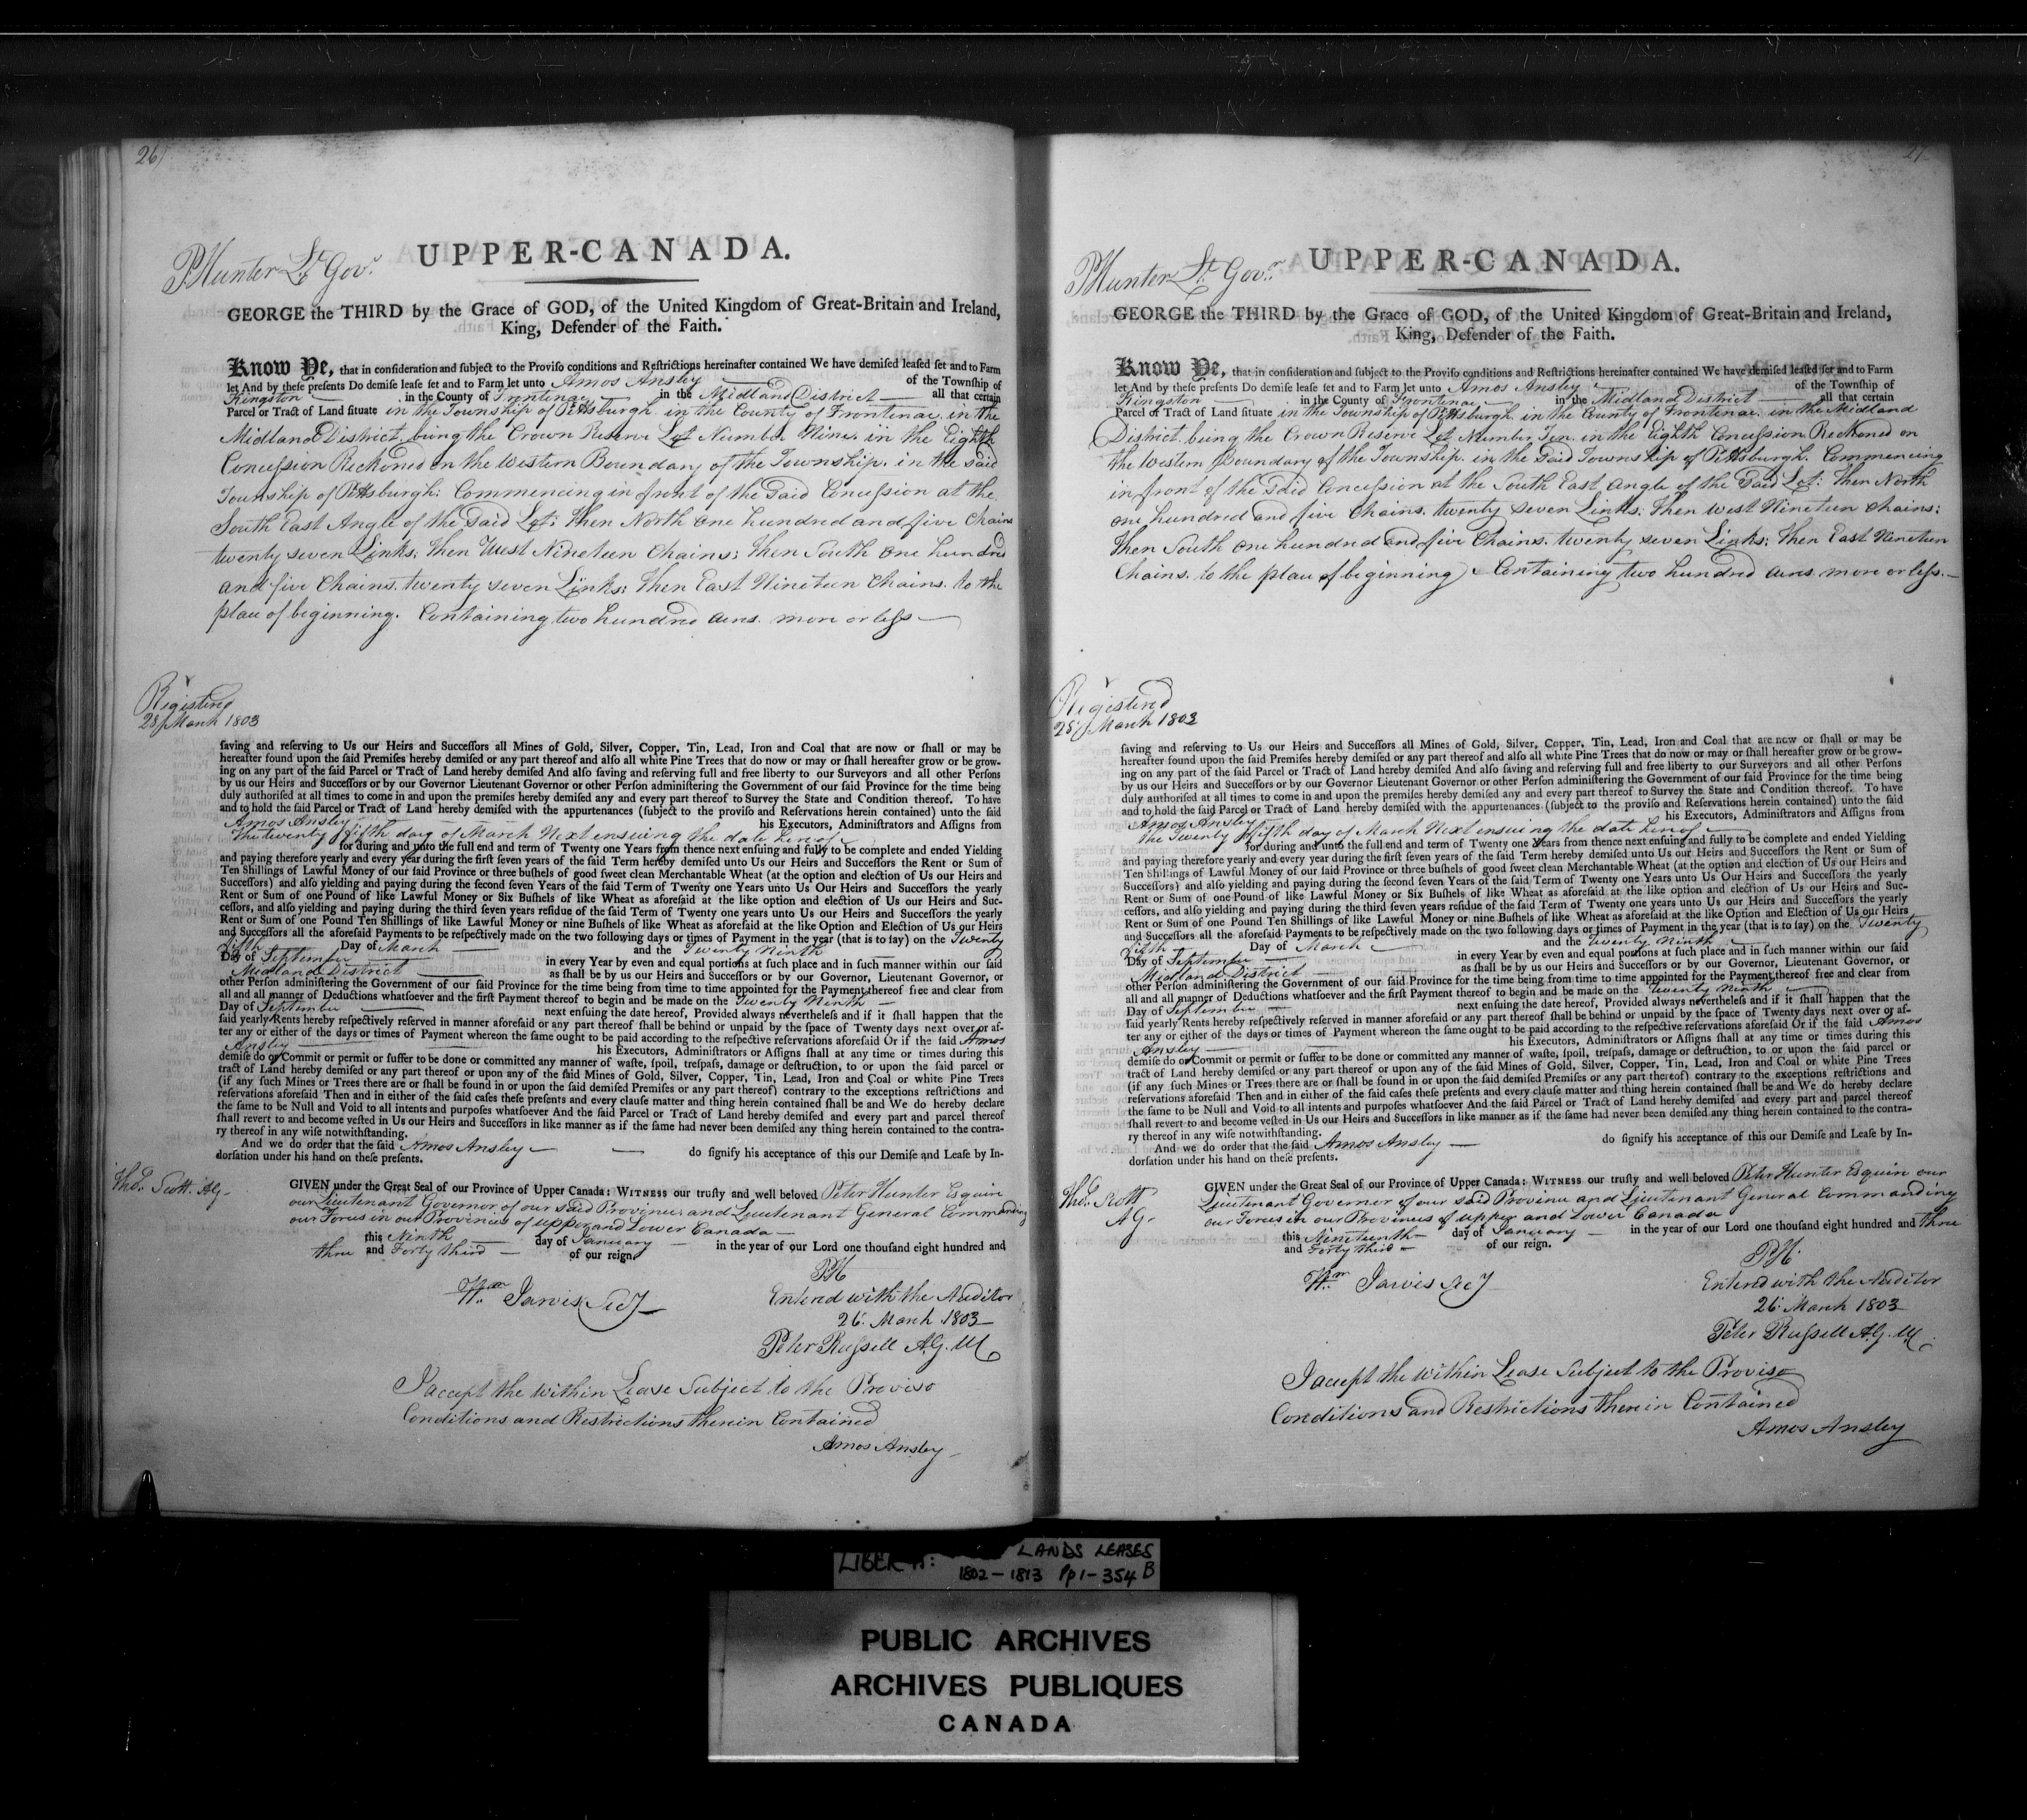 26
P Hunter Lt Govr.
UPPER-CANADA.
GEORGE the THIRD by the Grace of GOD, of the United Kingdom of Great-Britain and Ireland,
King, Defender of the Faith.
Know Ye, that in conſideration and ſubject to the Proviſo conditions and Reſtrictions hereinafter contained We have demiſed leaſed ſet and to Farm
let And by theſe preſents Do demiſe leaſe ſet and to Farm let unto Amos Ansley of the Township of
Kingston in the County of Frontenac in the Midland District all that certain
Parcel or Tract of Land ſituate in the Township of Pittsburgh in the County of Frontenac, in the
Midland District being the Crown Reserve Lot Number Nine, in the Eighth
Concession Reckoned on the Western Boundary of the Township. in the said
Township of Pittsburgh: Commencing in front of the Said Concession at the
South East Angle of the Said Lot; Then North One hundred and five Chains
twenty seven Links; Then West Nineteen Chains; Then South One hundred
and five Chains twenty seven Links; Then East Nineteen Chains. to the
place of beginning. Containing two hundred acres. more or less
Registered
28 March 1803
ſaving and reſerving to Us our Heirs and Succeſſors all Mines of Gold, Silver, Copper, Tin, Lead, Iron and Coal that are now or ſhall or may be
hereafter found upon the ſaid Premiſes hereby demiſed or any part thereof and alſo all white Pine Trees that do now or may or ſhall hereafter grow or be grow-
ing on any part of the ſaid Parcel or Tract of Land hereby demiſed And alſo ſaving and reſerving full and free liberty to our Surveyors and all other Perſons
by us our Heirs and Succeſſors or by our Governor Lieutenant Governor or other Perſon adminiſtering the Government of our ſaid Province for the time being
duly authoriſed at all times to come in and upon the premiſes hereby demiſed any and every part thereof to Survey the State and Condition thereof. To have
and to hold the ſaid Parcel or Tract of Land hereby demiſed with the appurtenances (ſubject to the proviſo and Reſervations herein contained) unto the ſaid
Amos Ansley his Executors, Adminiſtrators and Aſſigns from
The twenty fifth day of March Next ensuing the date hereof
for during and unto the full end and term of Twenty one Years from thence next enſuing and fully to be complete and ended Yielding
and paying therefore yearly and every year during the firſt ſeven years of the ſaid Term hereby demiſed unto Us our Heirs and Succeſſors the Rent or Sum of
Ten Shillings of Lawful Money of our ſaid Province or three buſhels of good ſweet clean Merchantable Wheat (at the option and election of Us our Heirs and
Succeſſors) and alſo yielding and paying during the ſecond ſeven Years of the ſaid Term of Twenty one Years unto Us Our Heirs and Succeſſors the yearly
Rent or Sum of one Pound of like Lawful Money or Six Buſhels of like Wheat as aforeſaid at the like option and election of Us our Heirs and Suc-
ceſſors, and alſo yielding and paying during the third ſeven years reſidue of the ſaid Term of Twenty one years unto Us our Heirs and Succeſſors the yearly
Rent or Sum of one Pound Ten Shillings of like Lawful Money or nine Buſhels of like Wheat as aforeſaid at the like Option and Election of Us our Heirs
and Succeſſors all the aforeſaid Payments to be reſpectively made on the two following days or times of Payment in the year (that is to ſay) on the Twenty
fifth Day of March and the Twenty Ninth
Day of September in every Year by even and equal portions at ſuch place and in ſuch manner within our ſaid
Midland District as ſhall be by us our Heirs and Succeſſors or by our Governor, Lieutenant Governor, or
other Perſon adminiſtering the Government of our ſaid Province for the time being from time to time appointed for the Payment thereof free and clear from
all and all manner of Deductions whatſoever and the firſt Payment thereof to begin and be made on the Twenty Ninth
Day of September next enſuing the date hereof, Provided always nevertheleſs and if it ſhall happen that the
ſaid yearly Rents hereby reſpectively reſerved in manner aforeſaid or any part thereof ſhall be behind or unpaid by the ſpace of Twenty days next over or af-
ter any or either of the days or times of Payment whereon the ſame ought to be paid according to the reſpective reſervations aforeſaid Or if the ſaid Amos
Ansley his Executors, Adminiſtrators or Aſſigns ſhall at any time or times during this
demiſe do or Commit or permit or ſuffer to be done or committed any manner of waſte, ſpoil, treſpaſs, damage or deſtruction, to or upon the ſaid parcel or
tract of Land hereby demiſed or any part thereof or upon any of the ſaid Mines of Gold, Silver, Copper, Tin, Lead, Iron and Coal or white Pine Trees
(if any ſuch Mines or Trees there are or ſhall be found in or upon the ſaid demiſed Premiſes or any part thereof) contrary to the exceptions reſtrictions and
reſervations aforeſaid Then and in either of the ſaid caſes theſe preſents and every clauſe matter and thing herein contained ſhall be and We do hereby declare
the ſame to be Null and Void to all intents and purpoſes whatſoever And the ſaid Parcel or Tract of Land hereby demiſed and every part and parcel thereof
ſhall revert to and become veſted in Us our Heirs and Succeſſors in like manner as if the ſame had never been demiſed any thing herein contained to the contra-
ry thereof in any wiſe notwithſtanding.
And we do order that the ſaid Amos Ansley do ſignify his acceptance of this our Demiſe and Leaſe by In-
dorſation under his hand on theſe preſents.
Thos. Scott. AG.
GIVEN under the Great Seal of our Province of Upper Canada: WITNESS our truſty and well beloved Peter Hunter Esquire
our Lieutenant Governor of our said Province, and Lieutenant General Commanding
our Forces in our Provinces of upper and Lower Canada
this Ninth day of January in the year of our Lord one thouſand eight hundred and
three and Forty third of our reign.
PH
Wm. Jarvis Secy
Entered with the Auditor
26. March 1803
Peter Russell A.G.
I accept the within Lease Subject to the Proviso
Conditions and Restrictions therein Contained
Amos Ansley
27
P Hunter Lt Govr.
UPPER-CANADA.
GEORGE the THIRD by the Grace of GOD, of the United Kingdom of Great-Britain and Ireland,
King, Defender of the Faith.
Know Ye, that in conſideration and ſubject to the Proviſo conditions and Reſtrictions hereinafter contained We have demiſed leaſed ſet and to Farm
let And by theſe preſents Do demiſe leaſe ſet and to Farm let unto Amos Ansley of the Township of
Kingston in the County of Frontenac in the Midland District all that certain
Parcel or Tract of Land ſituate in the Township of Pittsburgh in the County of Frontenac. in the Midland
District. being the Crown Reserve Lot Number Ten. in the Eighth Concession Reckoned on
the Western Boundary of the Township. in the Said Township of Pittsburgh. Commencing
in front of the Said Concession at the South East angle of the Said Lot: Then North
one hundred and five Chains. twenty seven Links; Then west Nineteen Chains;
Then South one hundred and five Chains. twenty seven Links; Then East Nineteen
Chains. to the place of beginning Containing two hundred acres. more or less.
Registered
28 March 1803
ſaving and reſerving to Us our Heirs and Succeſſors all Mines of Gold, Silver, Copper, Tin, Lead, Iron and Coal that are now or ſhall or may be
hereafter found upon the ſaid Premiſes hereby demiſed or any part thereof and alſo all white Pine Trees that do now or may or ſhall hereafter grow or be grow-
ing on any part of the ſaid Parcel or Tract of Land hereby demiſed And alſo ſaving and reſerving full and free liberty to our Surveyors and all other Perſons
by us our Heirs and Succeſſors or by our Governor Lieutenant Governor or other Perſon adminiſtering the Government of our ſaid Province for the time being
duly authoriſed at all times to come in and upon the premiſes hereby demiſed any and every part thereof to Survey the State and Condition thereof. To have
and to hold the ſaid Parcel or Tract of Land hereby demiſed with the appurtenances (ſubject to the proviſo and Reſervations herein contained) unto the ſaid
Amos Ansley his Executors, Adminiſtrators and Aſſigns from
the Twenty fifth day of March Next ensuing the date hereof
for during and unto the full end and term of Twenty one Years from thence next enſuing and fully to be complete and ended Yielding
and paying therefore yearly and every year during the firſt ſeven years of the ſaid Term hereby demiſed unto Us our Heirs and Succeſſors the Rent or Sum of
Ten Shillings of Lawful Money of our ſaid Province or three buſhels of good ſweet clean Merchantable Wheat (at the option and election of Us our Heirs and
Succeſſors) and alſo yielding and paying during the ſecond ſeven Years of the ſaid Term of Twenty one Years unto Us Our Heirs and Succeſſors the yearly
Rent or Sum of one Pound of like Lawful Money or Six Buſhels of like Wheat as aforeſaid at the like option and election of Us our Heirs and Suc-
ceſſors, and alſo yielding and paying during the third ſeven years reſidue of the ſaid Term of Twenty one years unto Us our Heirs and Succeſſors the yearly
Rent or Sum of one Pound Ten Shillings of like Lawful Money or nine Buſhels of like Wheat as aforeſaid at the like Option and Election of Us our Heirs
and Succeſſors all the aforeſaid Payments to be reſpectively made on the two following days or times of Payment in the year (that is to ſay) on the Twenty
fifth Day of March and the Twenty Ninth
Day of September in every Year by even and equal portions at ſuch place and in ſuch manner within our ſaid
Midland District as ſhall be by us our Heirs and Succeſſors or by our Governor, Lieutenant Governor, or
other Perſon adminiſtering the Government of our ſaid Province for the time being from time to time appointed for the Payment thereof free and clear from
all and all manner of Deductions whatſoever and the firſt Payment thereof to begin and be made on the Twenty Ninth
Day of September next enſuing the date hereof, Provided always nevertheleſs and if it ſhall happen that the
ſaid yearly Rents hereby reſpectively reſerved in manner aforeſaid or any part thereof ſhall be behind or unpaid by the ſpace of Twenty days next over or af-
ter any or either of the days or times of Payment whereon the ſame ought to be paid according to the reſpective reſervations aforeſaid Or if the ſaid Amos
Ansley his Executors, Adminiſtrators or Aſſigns ſhall at any time or times during this
demiſe do or Commit or permit or ſuffer to be done or committed any manner of waſte, ſpoil, treſpaſs, damage or deſtruction, to or upon the ſaid parcel or
tract of Land hereby demiſed or any part thereof or upon any of the ſaid Mines of Gold, Silver, Copper, Tin, Lead, Iron and Coal or white Pine Trees
(if any ſuch Mines or Trees there are or ſhall be found in or upon the ſaid demiſed Premiſes or any part thereof) contrary to the exceptions reſtrictions and
reſervations aforeſaid Then and in either of the ſaid caſes theſe preſents and every clauſe matter and thing herein contained ſhall be and We do hereby declare
the ſame to be Null and Void to all intents and purpoſes whatſoever And the ſaid Parcel or Tract of Land hereby demiſed and every part and parcel thereof
ſhall revert to and become veſted in Us our Heirs and Succeſſors in like manner as if the ſame had never been demiſed any thing herein contained to the contra-
ry thereof in any wiſe notwithſtanding.
And we do order that the ſaid Amos Ansley do ſignify his acceptance of this our Demiſe and Leaſe by In-
dorſation under his hand on theſe preſents.
Thos. Scott
AG.
GIVEN under the Great Seal of our Province of Upper Canada: WITNESS our truſty and well beloved Peter Hunter Esquire our
Lieutenant Governor of our said Province and Lieutenant General Commanding
our Forces in our Provinces of upper and Lower Canada
this Nineteenth day of January in the year of our Lord one thouſand eight hundred and three
and Forty third of our reign.
PH.
Wm. Jarvis Secy
Entered with the Auditor
26. March 1803
Peter Russell A.G.
I accept the within Lease Subject to the Proviso
Conditions and Restrictions therein Contained
Amos Ansley
LIBER LANDS LEASES
1802-1813 Pp 1-354 B
PUBLIC ARCHIVES
ARCHIVES PUBLIQUES
CANADA